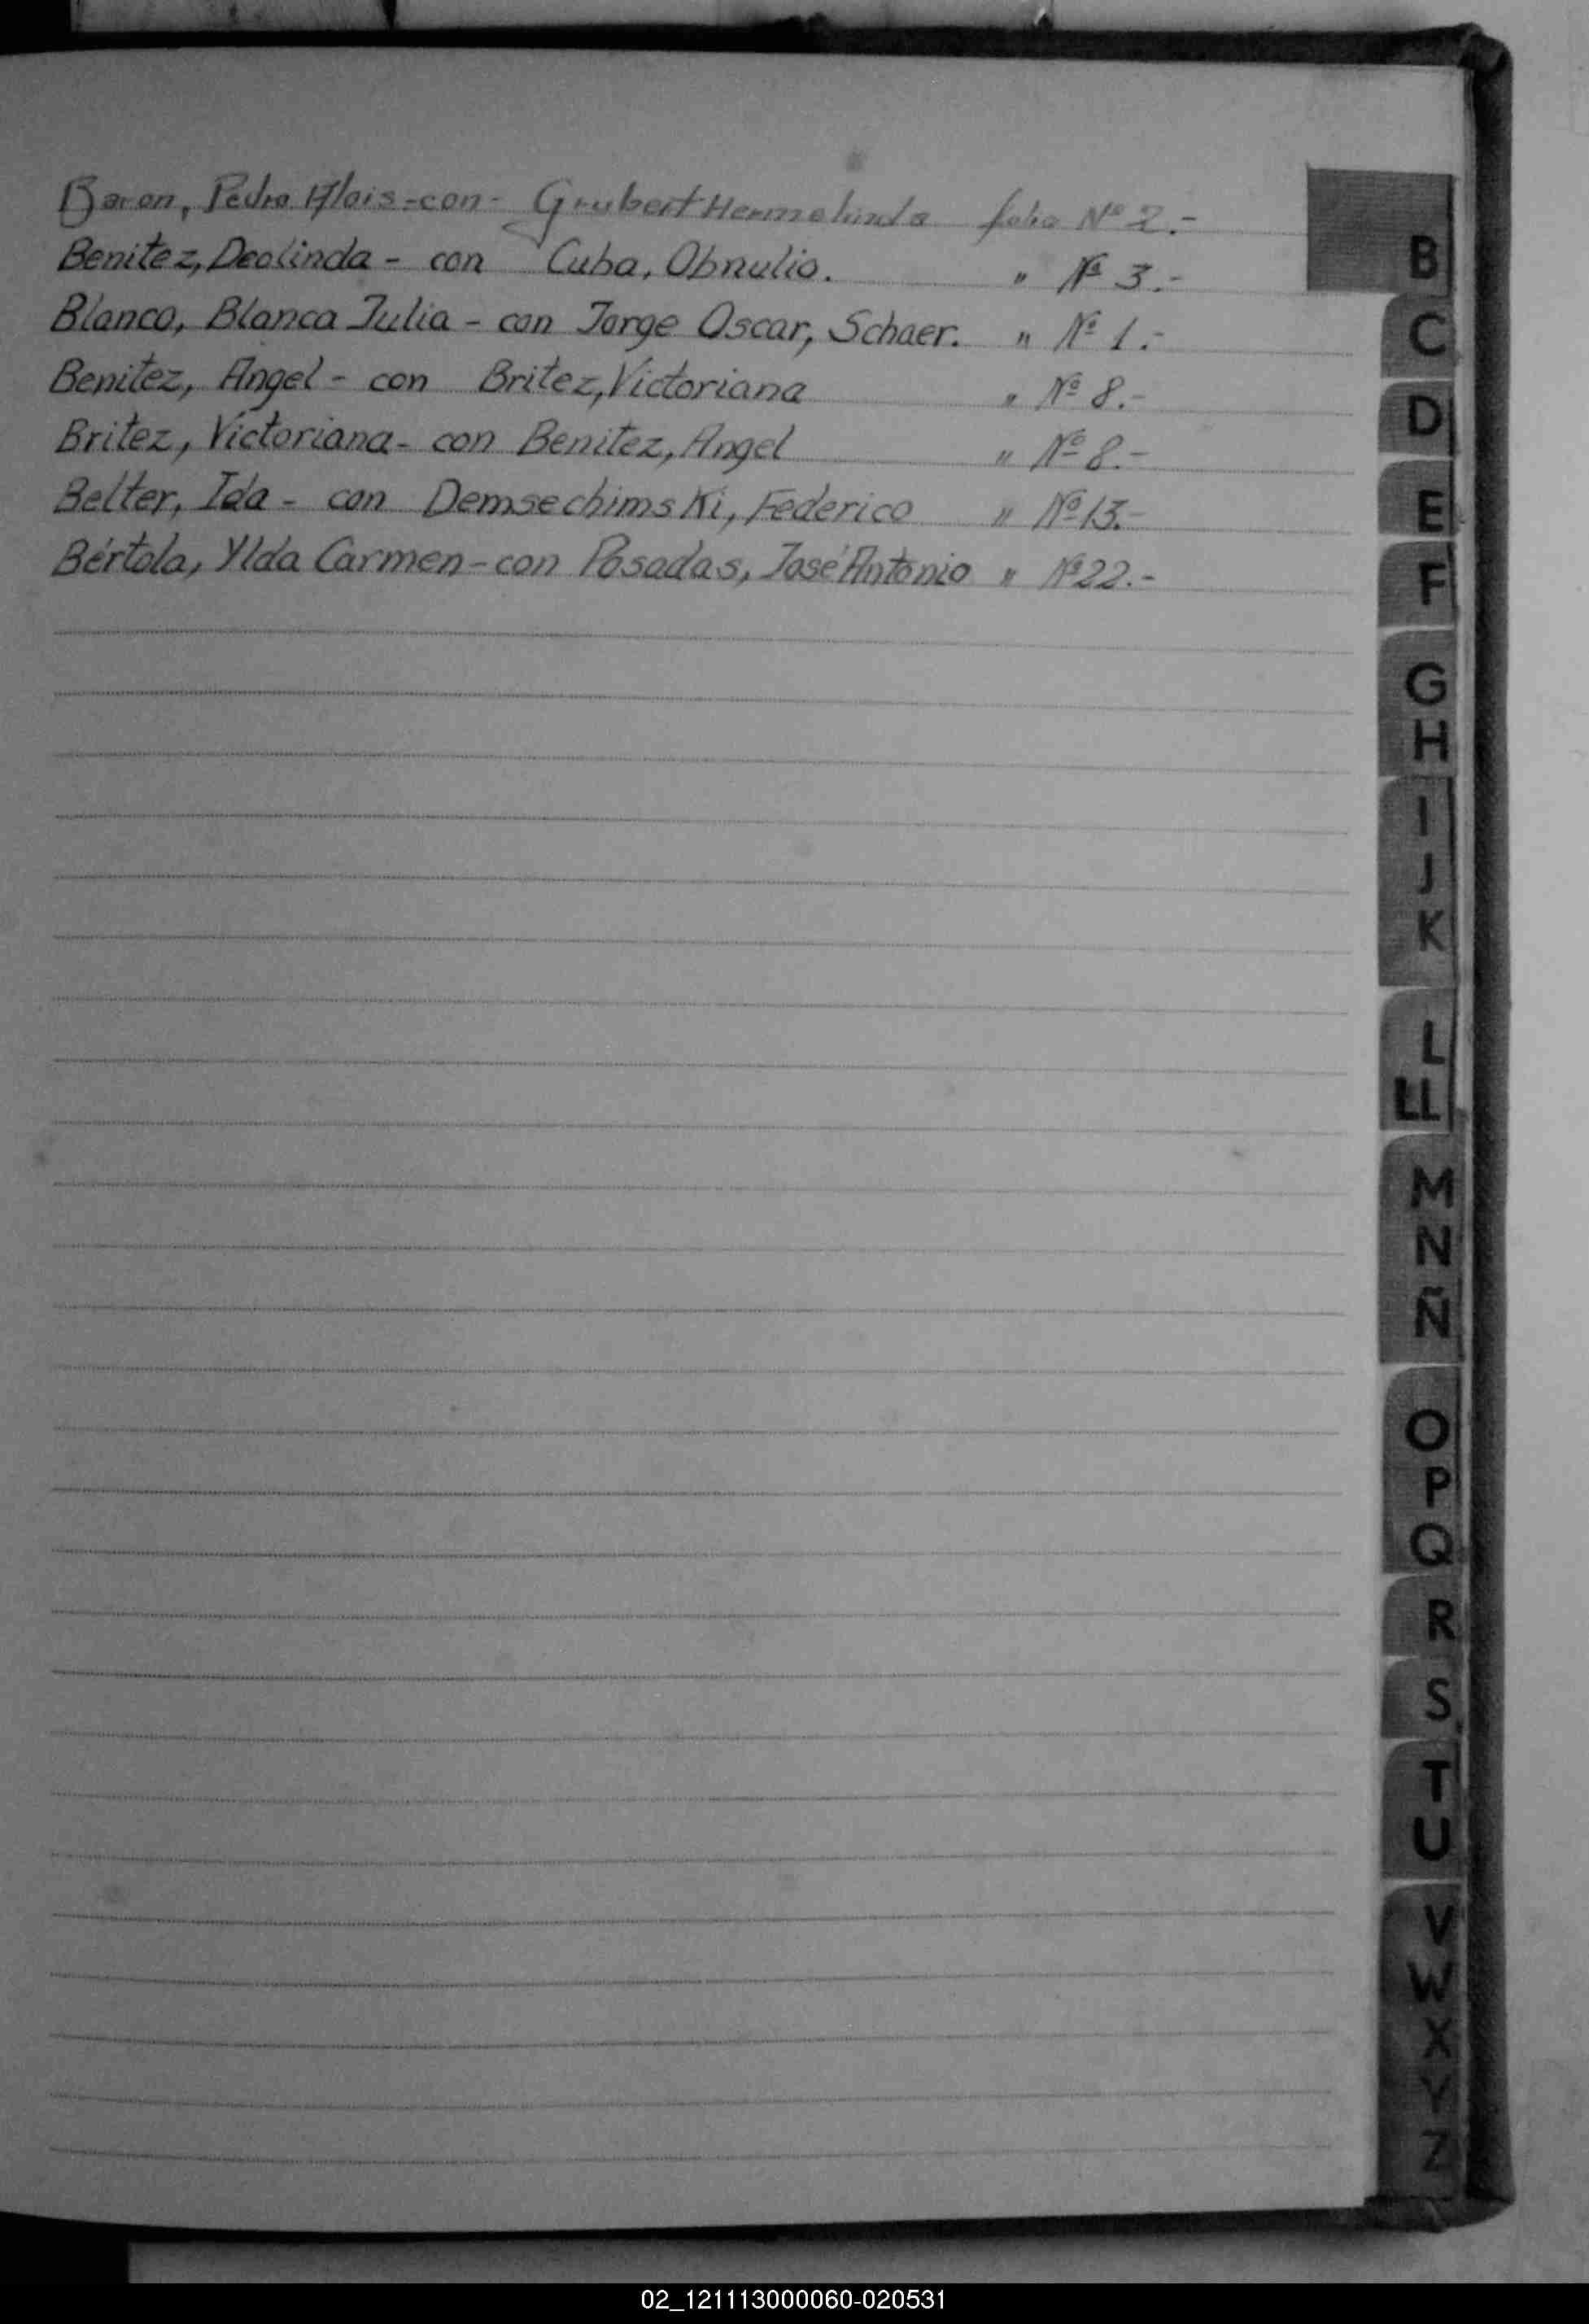 Baron, Pedro Alois - con - Grubert Hermelinda folio Nº 2.-
Benitez, Deolinda - con Cuba, Obnulio. " Nº 3.-
Blanco, Blanca Julia - con Jorge Oscar, Schaer. " Nº 1.-
Benitez, Angel - con Britez, Victoriana " Nº 8.-
Britez, Victoriana - con Benitez, Angel " Nº 8.-
Belter, Ida - con Demsechimski, Federico " Nº 13.-
Bértola, Ylda Carmen - con Posadas, José Antonio " Nº 22.-
B
C
D
E
F
G
H
I
J
K
L
LL
M
N
Ñ
O
P
Q
R
S
T
U
V
W
X
Y
Z
02_121113000060-020531